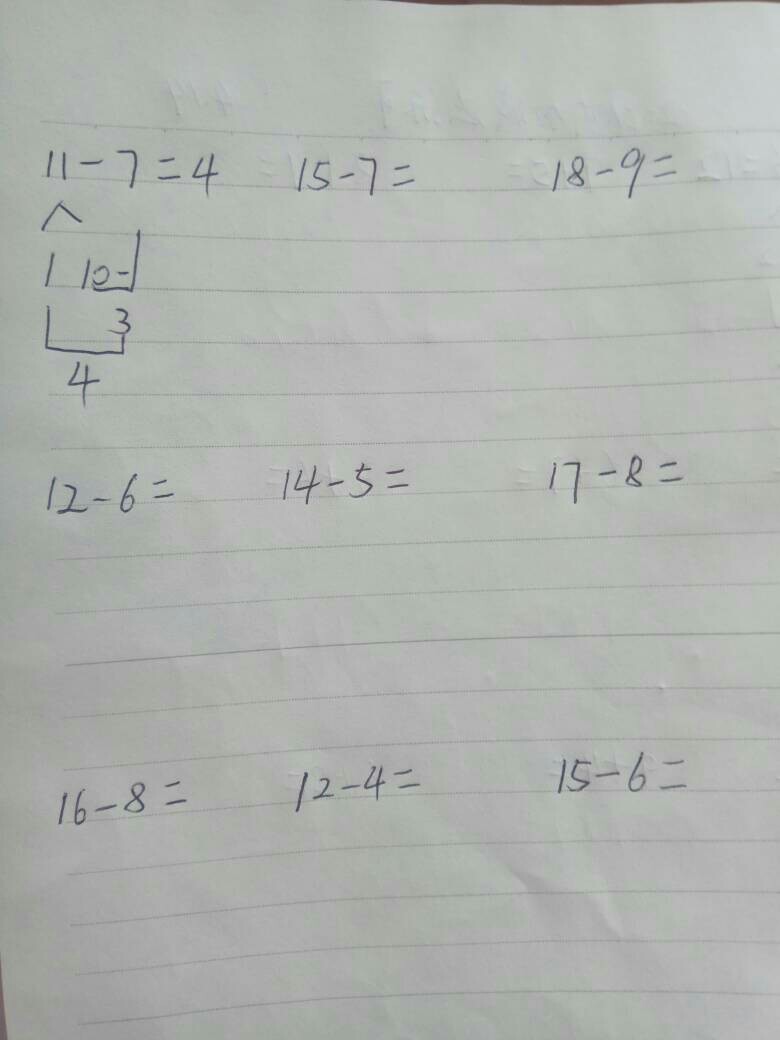 11-7=4 15-7= 18-9=
1 10-
3
4
12-6= 14-5= 17-8=
16-8= 12-4= 15-6=